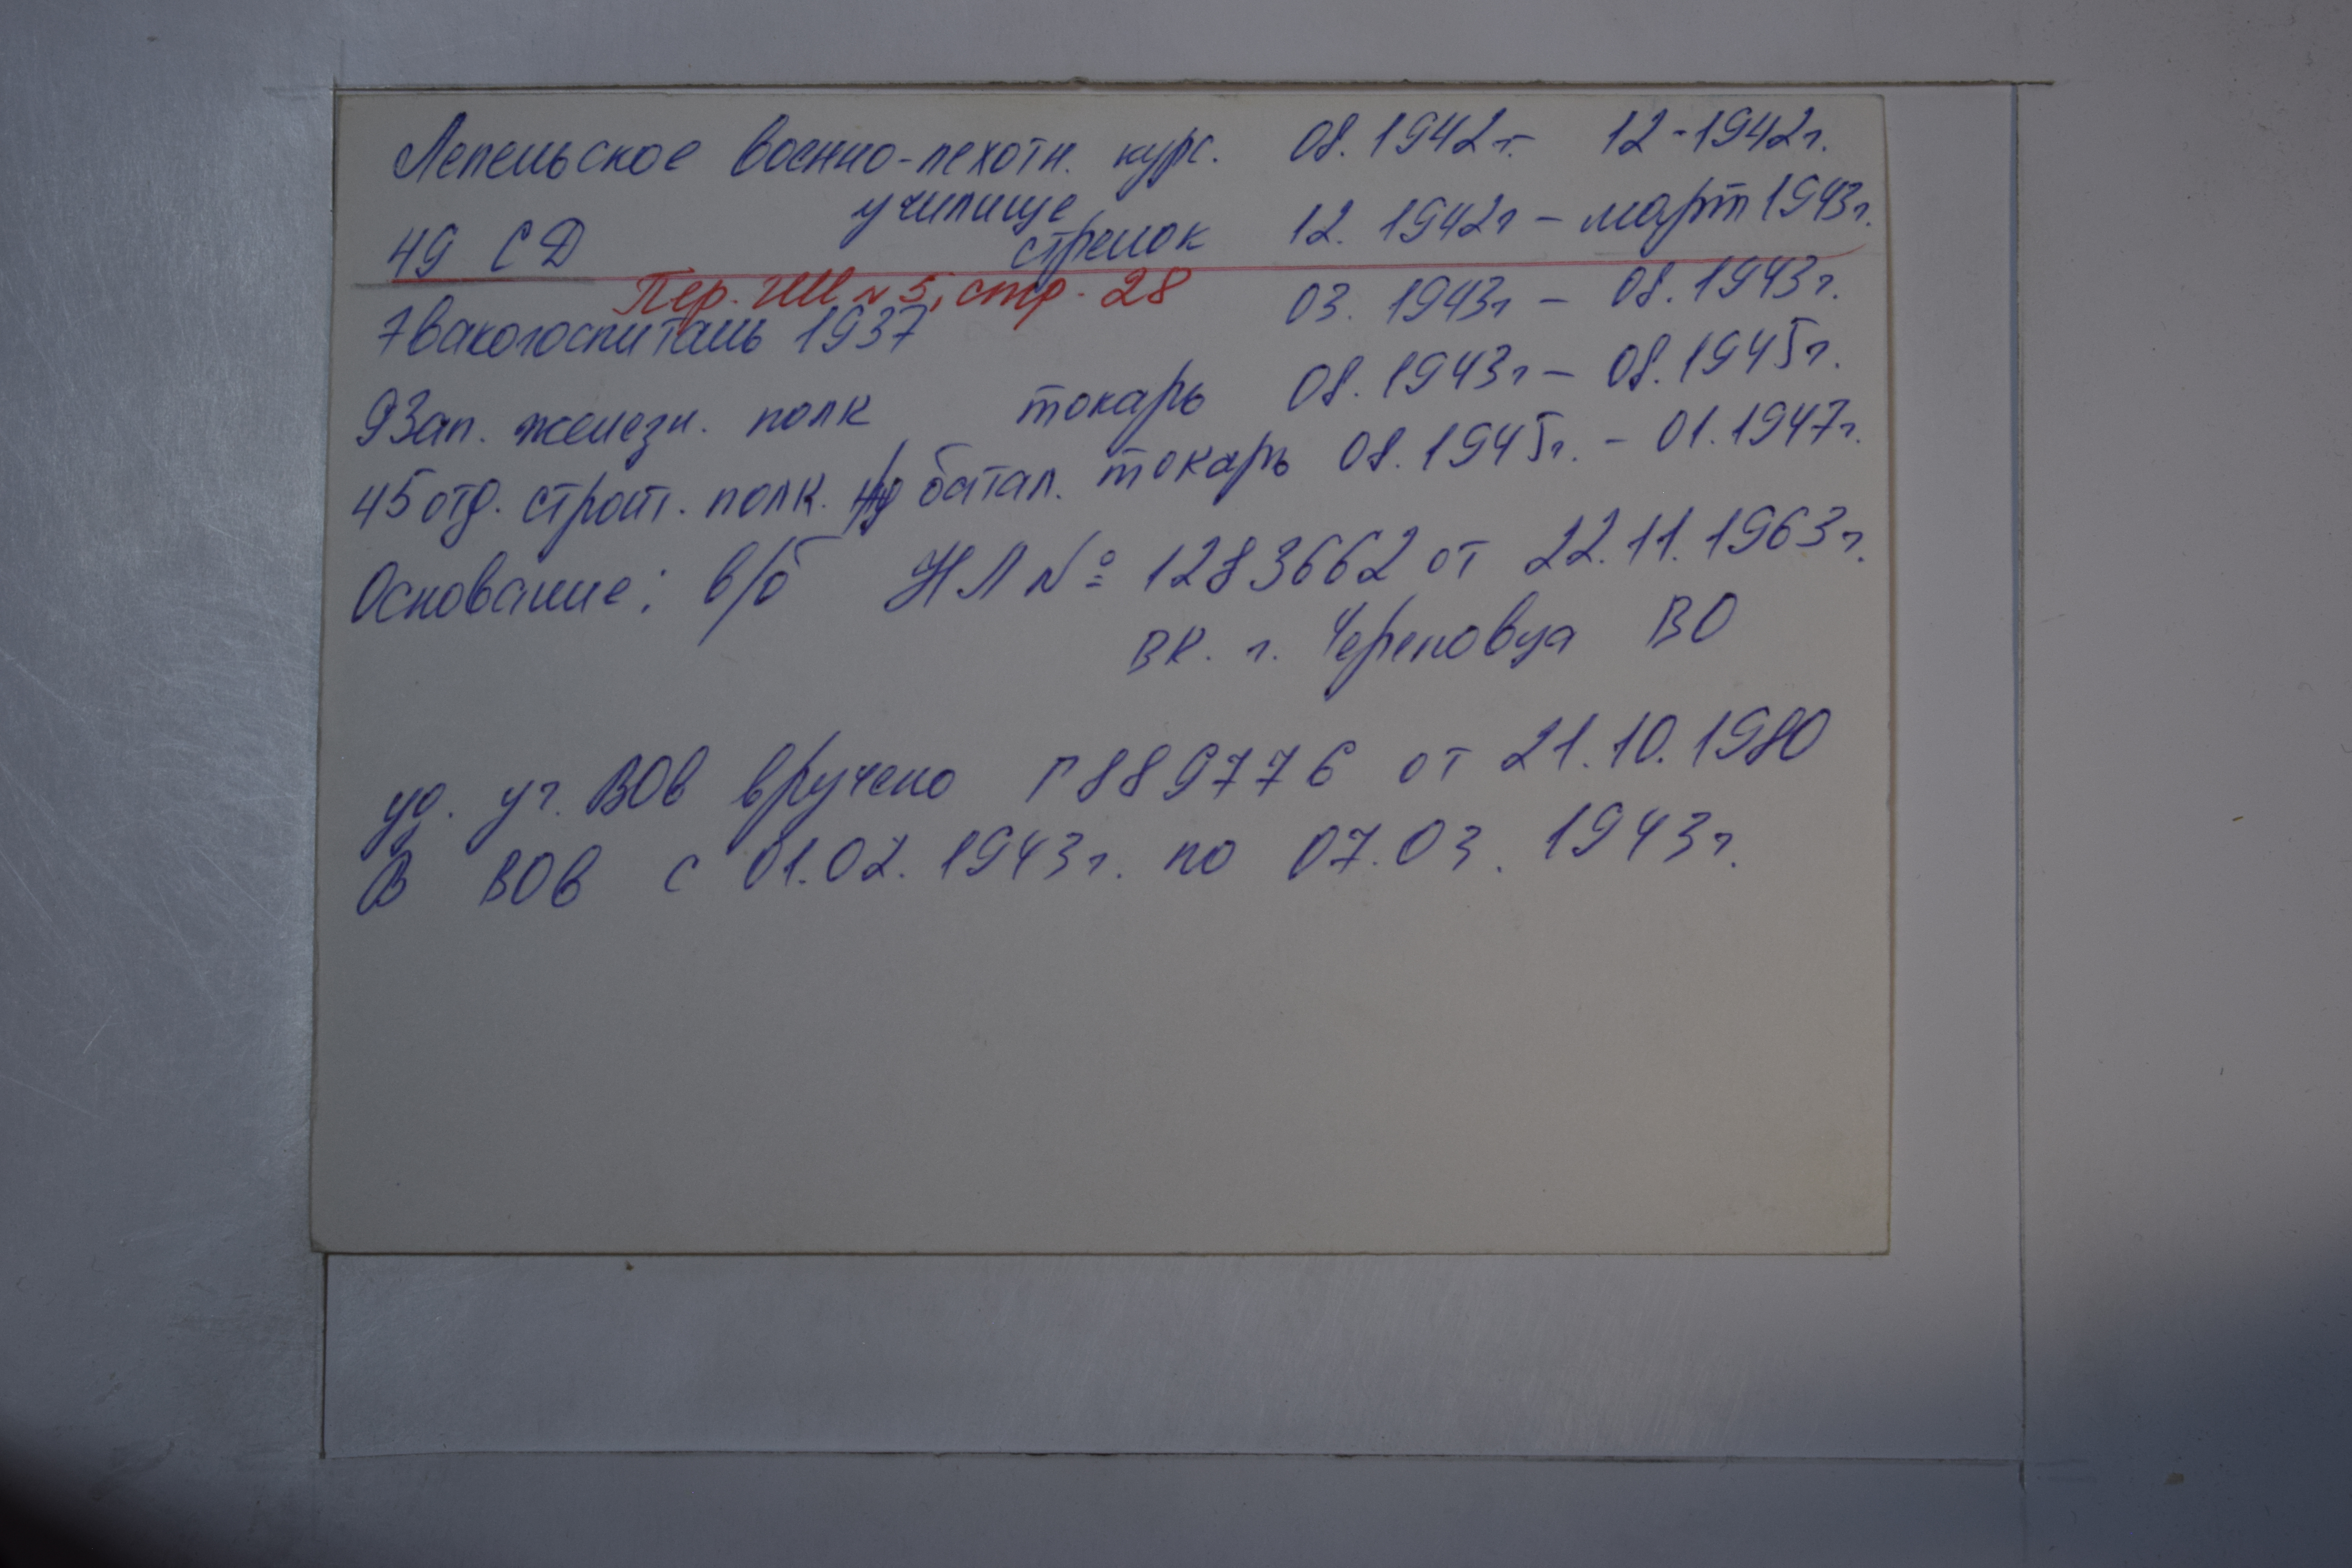 Лепельское военно-пехотн. курс. 08.1942г.- 12-1942г.
училище
49 СД стрелок 12.1942г - март 1943г.
Пер. ГШ №5, стр. 28
Эвакогоспиталь 1937 03.1943г - 08.1943г.
9 Зап. железн. полк токарь 08.1943г - 08.1945г.
45 отд. строит. полк. батал. токарь 08.1945г. - 01.1947г.
Основание: в/б НЛ № 1283662 от 22.11.1963г.
ВК. г. Череповца ВО
уд. уч. ВОв вручено Г 889776 от 21.10.1980
В ВОВ с 01.02.1943г. по 07.03.1943г.